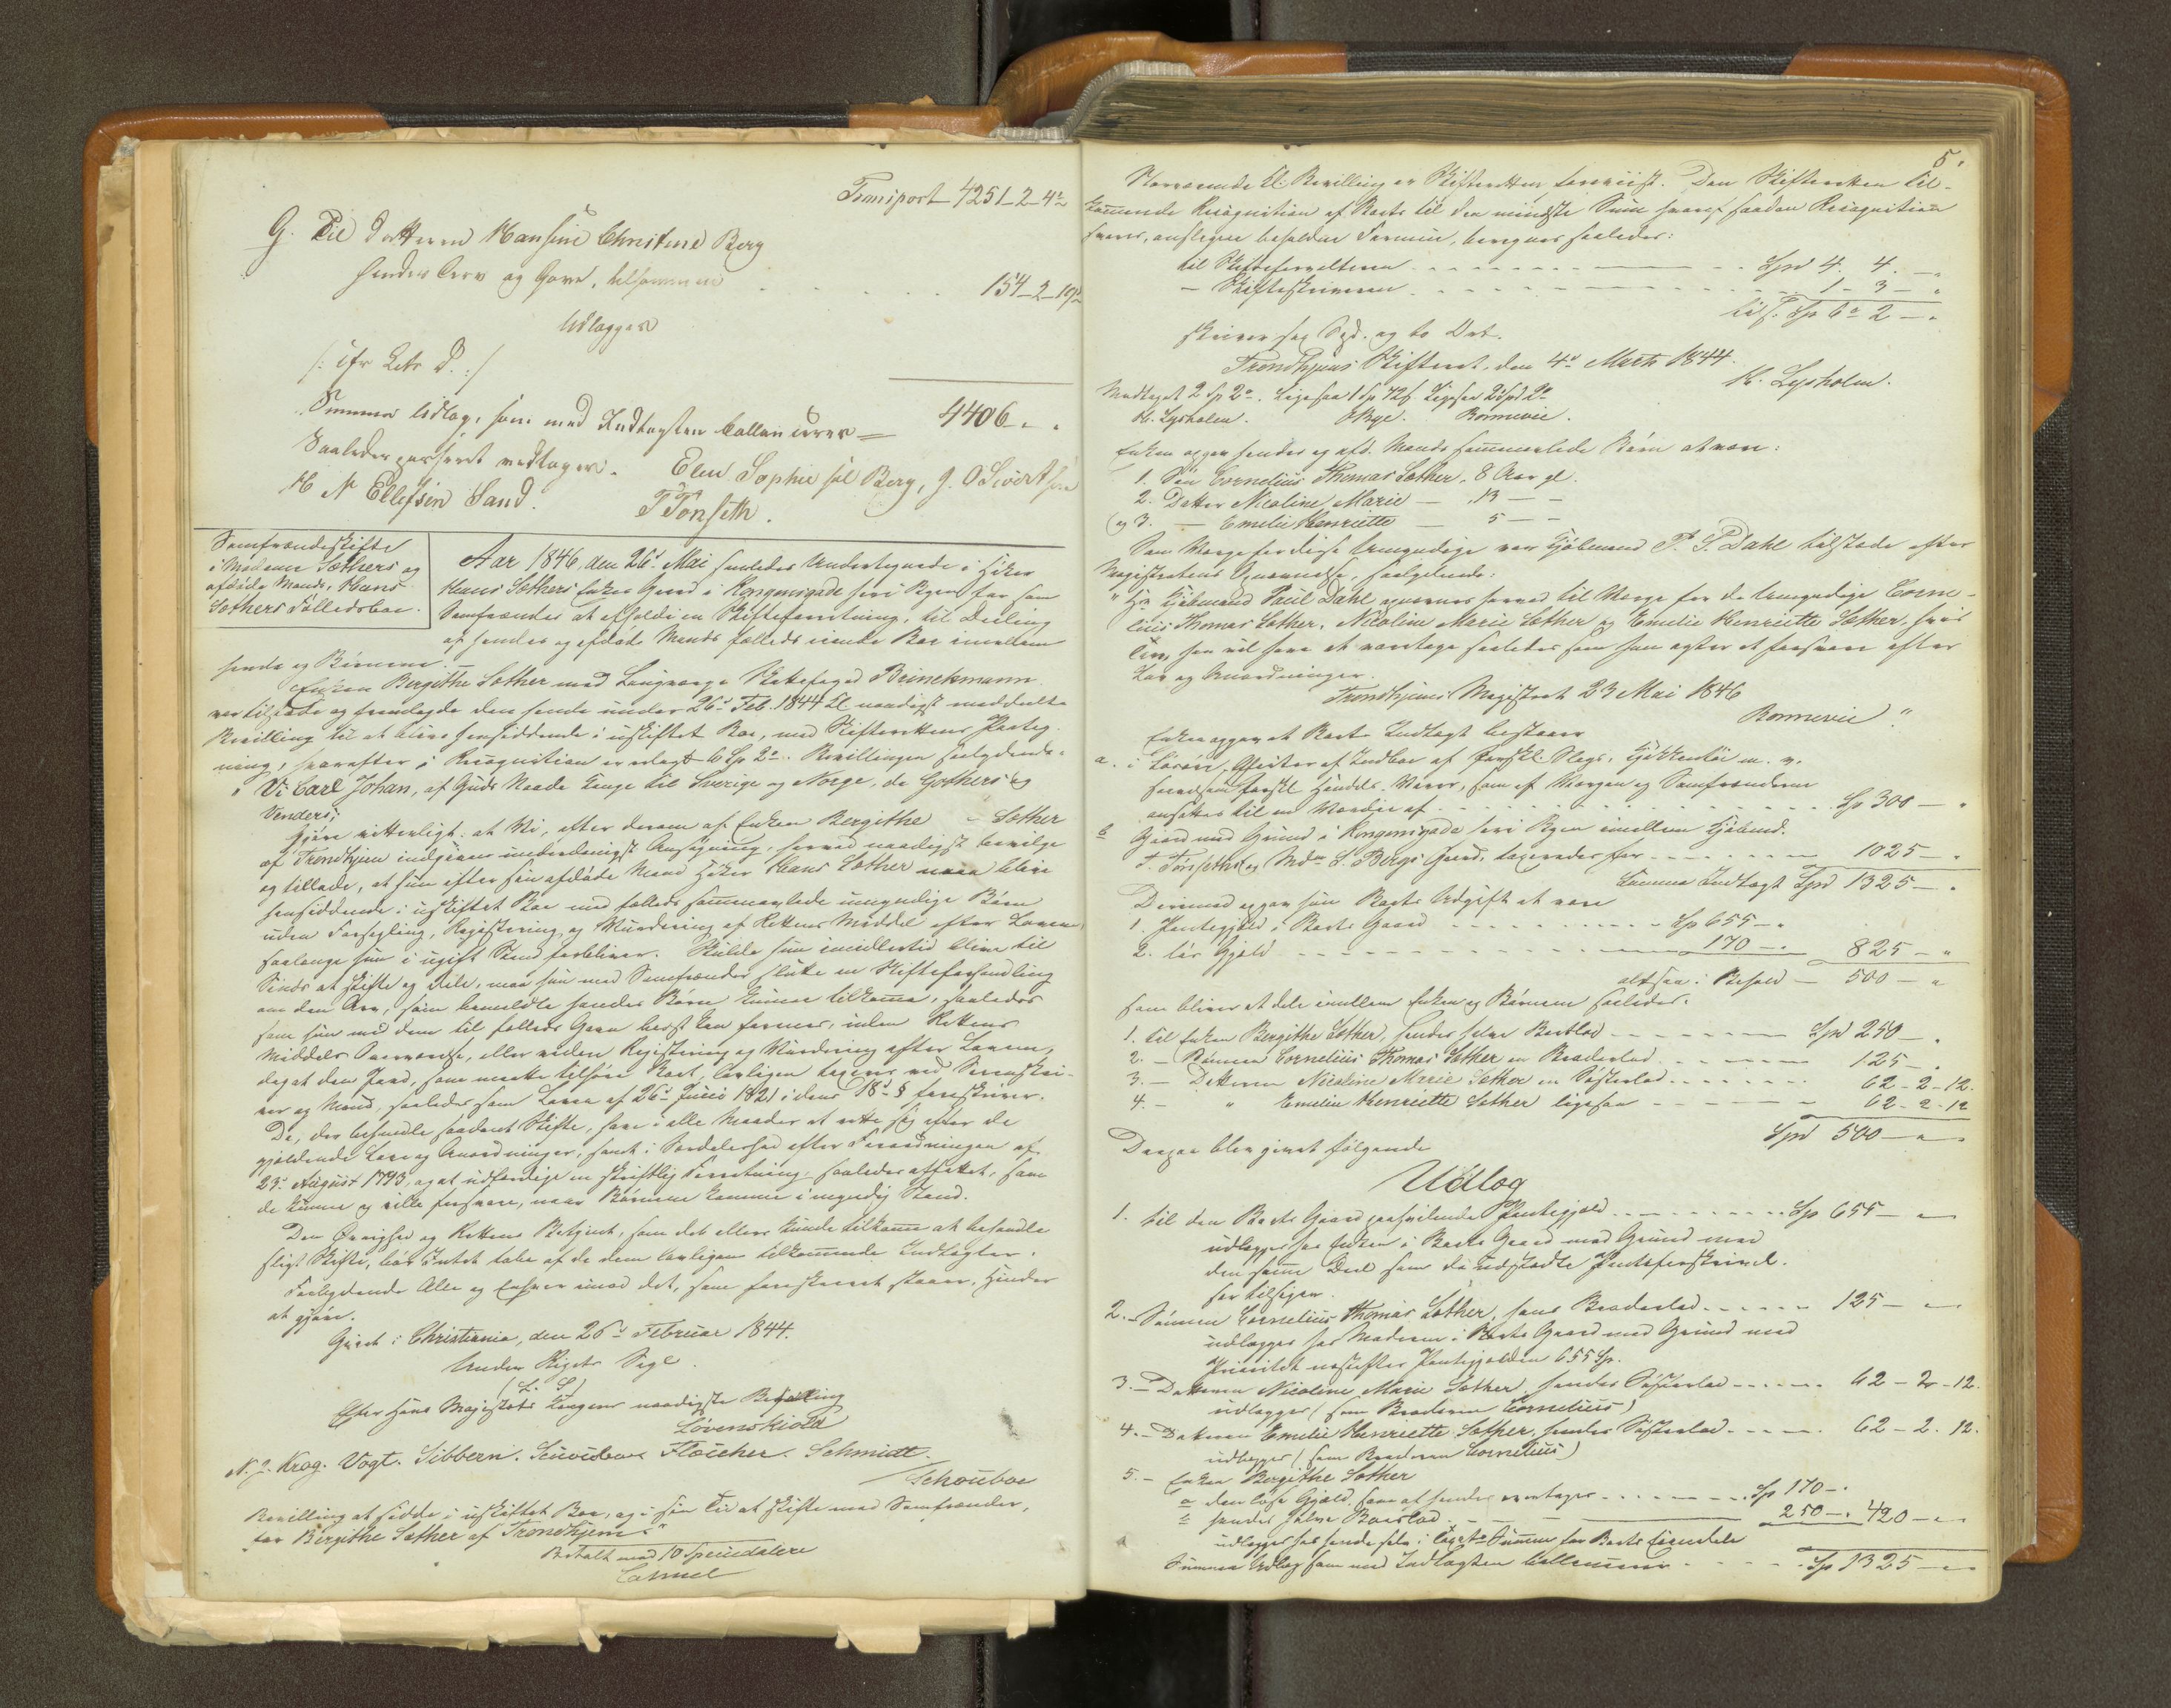 Transport 4251-2-4
G. Til Datteren Hansine Christine Berg
hendes Arv og Gave, tilsammen 154-2-19
udlægges
/: cfr Litr D. :/
Summa Udlæg, som med Indtægten ballancerer = 4406 " "
Saaledes passeret vedtages. Elen Sophie sal Berg, J. O Sivertsen
H N Ellefsen Sand. T Tønseth.
Samfrændeskifte
i Madame Sæthers og
afdøde Mands, Hans
Sæthers Fælledsboe.
Aar 1846, den 26d Mai samledes Undertegnede i Høker
Hans Sæthers Enkes Gaard i Kongensgade her i Byen for som
Samfrænder at afholde en Skifteforretning, til Deeling
af hendes og afdøde Mands fælleds eiende Boe imellem
hende og Børnene.
Enken Bergithe Sæther med Laugværge Brinchmann
var tilstede og fremlagde den hende under 26d Feb. 1844 naadigst meddeelte
Bevilling til at blive hensiddende i uskiftet Boe, med Skifterettens Paateg-
ning, hvorefter i Recognition er erlagt 6 Sp 2. Bevillingen saalydende:
"Vi Carl Johan, af Guds Naade Konge til Sverige og Norge, de Gothers og
Venders;
Gjøre vitterligt: at Vi, efter derom af Enken Bergithe Sæther
af Trondhjem indgiven underdanigst Ansøgning, herved naadigst bevilge
og tillade, at hun efter sin afdøde Mand Høker Hans Sæther maa blive
hensiddende i uskiftet Boe med fælleds sammenavlede umyndige Børn
uden Forsegling, Registering og Vurdering af Rettens Middel efter Loven
saalænge hun i ugift Stand forbliver. Skulde hun imidlertid blive til
Sinds at skifte og dele, maa hun med Samfrænder slutte en Skifteforhandling
om den Arv, som bemeldte hendes Børn kunne tilkomme, saaledes
som hun med dem til fælleds Gavn bedst kan forenes, uden Rettens
Middels Overværelse, eller videre Registering og Vurdering efter Loven,
dog at den Jord, som maatte tilhøre Boet, lovligen taxeres ved
og Mænd, saaledes som Loven af 26d Junii 1821 i dens 18d § foreskriver.
De, der behandle saadant Skifte, have i alle Maader at rette sig efter de
gjældende Love og Anordninger, samt i Særdeleshed efter Forordningen af
23d August 1793, og at udfærdige en skriftlig Forretning, saaledes affattet, som
de kunne og ville forsvare, naar Børnene komme i myndig Stand.
Den Øvrighed og Rettens Betjent, som det ellers kunde tilkomme at behandle
sligt Skifte, bør Intet tabe af de dem lovligen tilkommende Indtægter.
Forbydende Alle og Enhver imod det, som foreskrevet staaer, Hinder
at gjøre.
Givet i Christiania, den 26d Februar 1844.
Under Rigets Segl.
(L. S.)
Efter Hans Majestæts Kongens naadigste Befaling
Løvenskiold
N. J. Krog. Vogt. Sibbern. Fleischer. Schmidt.
/Schouboe
Bevilling at sidde i uskiftet Boe, og i sin Tid at skifte med Samfrænder,
for Bergithe Sæther af Trondhjem."
Betalt med 10 Speciedalere
5.
Nærværende Bevilling er Skifteretten foreviist. Den Skifteretten til-
kommende Recognition af Boets til den mindste Sum hvoraf saadan Recognition
svares, ansatte beholdne Formue, beregnes saaledes:
til Skifteforvalteren Spd 4. 4. - "
- Skifteskriveren 1 - 3 - "
tils. Sp 6 2 - "
skriver sex Spd. og to Ort.
Trondhjems Skifteret, den 4d Marts 1844.
H. Lysholm.
Modtaget 2 Sp 2. Ligesaa 1 Sp 72 s Ligesaa 2 Spd 2
H. Lysholm. Bye. Bonnevie.
Enken opgav hendes og afd. Mands sammenavlede Børn at være:
1. Søn Cornelius Thomas Sæther, 8 Aar gl.
2. Datter Nicoline Marie - 13 - -
og 3. - Emelie Henriette - 5 - -
Som Værge for disse Umyndige var Kjøbmand P. P. Dahl tilstede efter
Magistratens Opnævnelse, saalydende:
"Hr Kjøbmand Paul Dahl opnævnes herved til Værge for de Umyndige Corne-
lius Thomas Sæther, Nicoline Marie Sæther og Emelie Henriette Sæther, hvis
Tarv, han vil have at varetage saaledes som han agter at forsvare efter
Lov og Anordninger.
Trondhjems Magistrat 23 Mai 1846
Bonnevie."
Enken opgav at Boets Indtægt bestaaer
a. i Løsøre, Effecter af Indboe af forskl. Slags, Kjøkkentøi m. v.
forudsom forskl. Handels Varer, som af Værgen og Samfrænderne
ansættes til en Værdie af Sp 300 - "
b Gaard med Grund i Kongensgade her i Byen imellem Kjøbmd.
T. Tønseths og Mdm S. Bergs Gaard, taxeredes for 1025 - "
Summa Indtægt Spd 1325 - "
Derimod opgav hun Boets Udgift at være
1. Pantegjæld i Boets Gaard Sp 655 - "
2. løs Gjæld 170 - " 825 - "
altsaa i Behold - 500 - "
som bliver at dele imellem Enken og Børnene saaledes:
1. til Enken Bergithe Sæther, hendes halve Boeslod Spd 250 - "
2. - Sønnen Cornelius Thomas Sæther en Broderlod 125 - "
3. - Datteren Nicoline Marie Sæther en Søsterlod 62-2-12.
4. - " Emelie Henriette Sæther ligesaa 62-2-12
Spd 500 - " -
Derpaa blev gjort følgende
Udlæg
1. til den Boets Gaard paahvilende Pantegjæld Sp 655 - " -
udlægges hos Enken i Boets Gaard med Grund med
den samme Ret som de udstædte Panteforskrivel.
ser tilsiger.
2. - Sønnen Cornelius Thomas Sæther, hans Broderlod 125 - " -
udlægges hos Moderen i Boets Gaard med Grund med
Prioritet næstefter Pantegjælden 655 Sp.
3. - Datteren Nicoline Marie Sæther, hendes Søsterlod 62-2-12.
udlægges (som Broderen Cornelius)
4. - Datteren Emelie Henriette Sæther, hendes Søsterlod 62-2.12.
udlægges (som Broderen Cornelius)
5. - Enken Bergithe Sæther
a den løse Gjæld, som af hende overtages Sp 170 - "
b hendes halve Boeslod 250 - " 420 - " -
udlægges hos hende selv i Boets Eiendele
Summa Udlæg som med Indtægten ballancerer Sp 1325 - " -